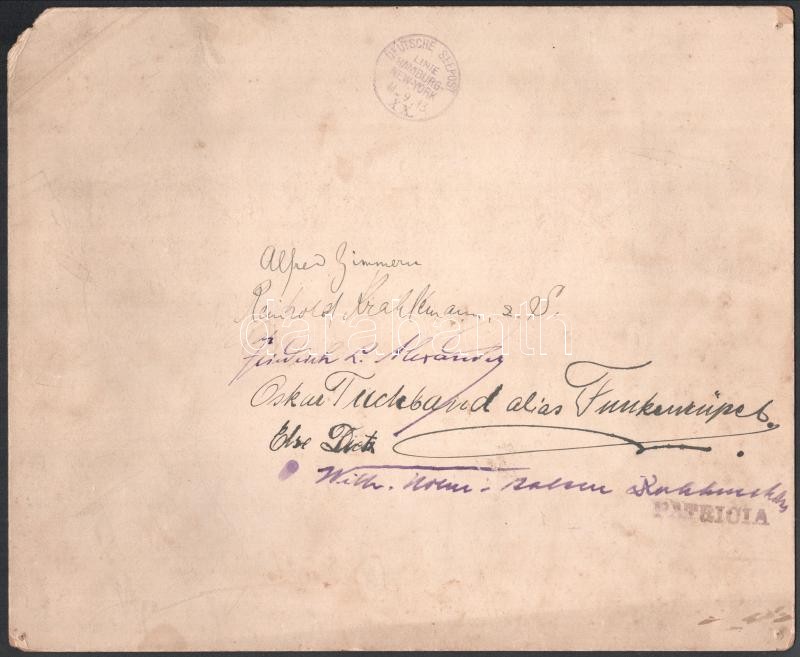 DEUTSCHE SEEPOST
LINIE
HAMBURG-
NEW-YORK
9. 13.
XX
Alfred Zimmern
Reinhold Krahlemann, z. S.
darabanth
Friedrich L. Alexander
Oskar Tuckband alias Funkenrüpel.
Else
Wilh.
PATRICIA